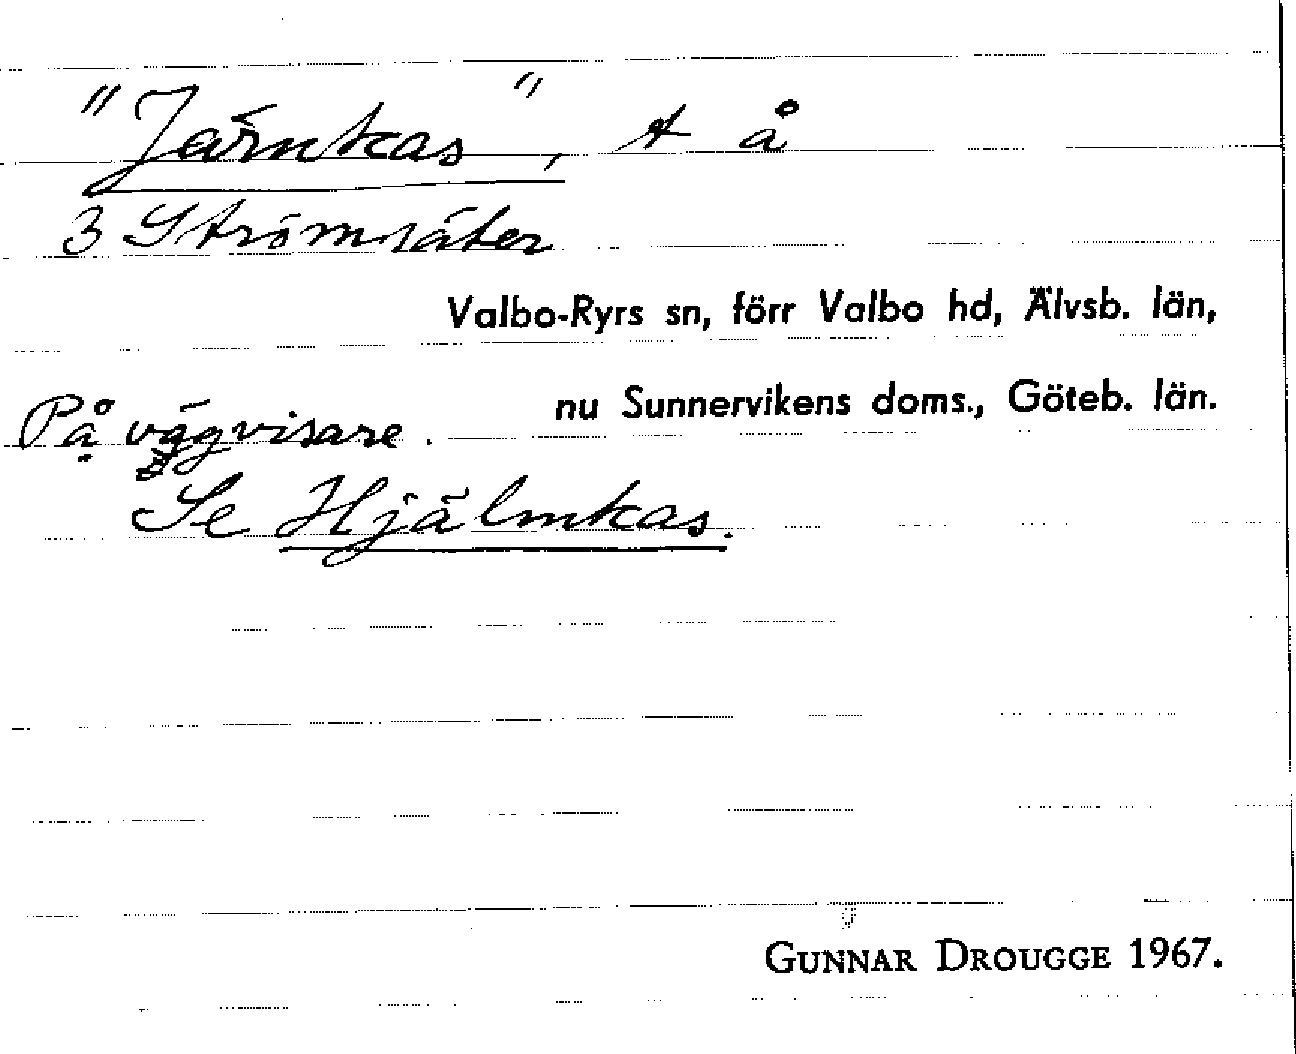 "Järnkas", t å
3 Strömsäter
Valbo-Ryrs sn, förr Valbo hd, Älvsb. län,
nu Sunnervikens doms., Göteb. län.
På vägvisare.
Se Hjälmkas.
GUNNAR DROUGGE 1967.